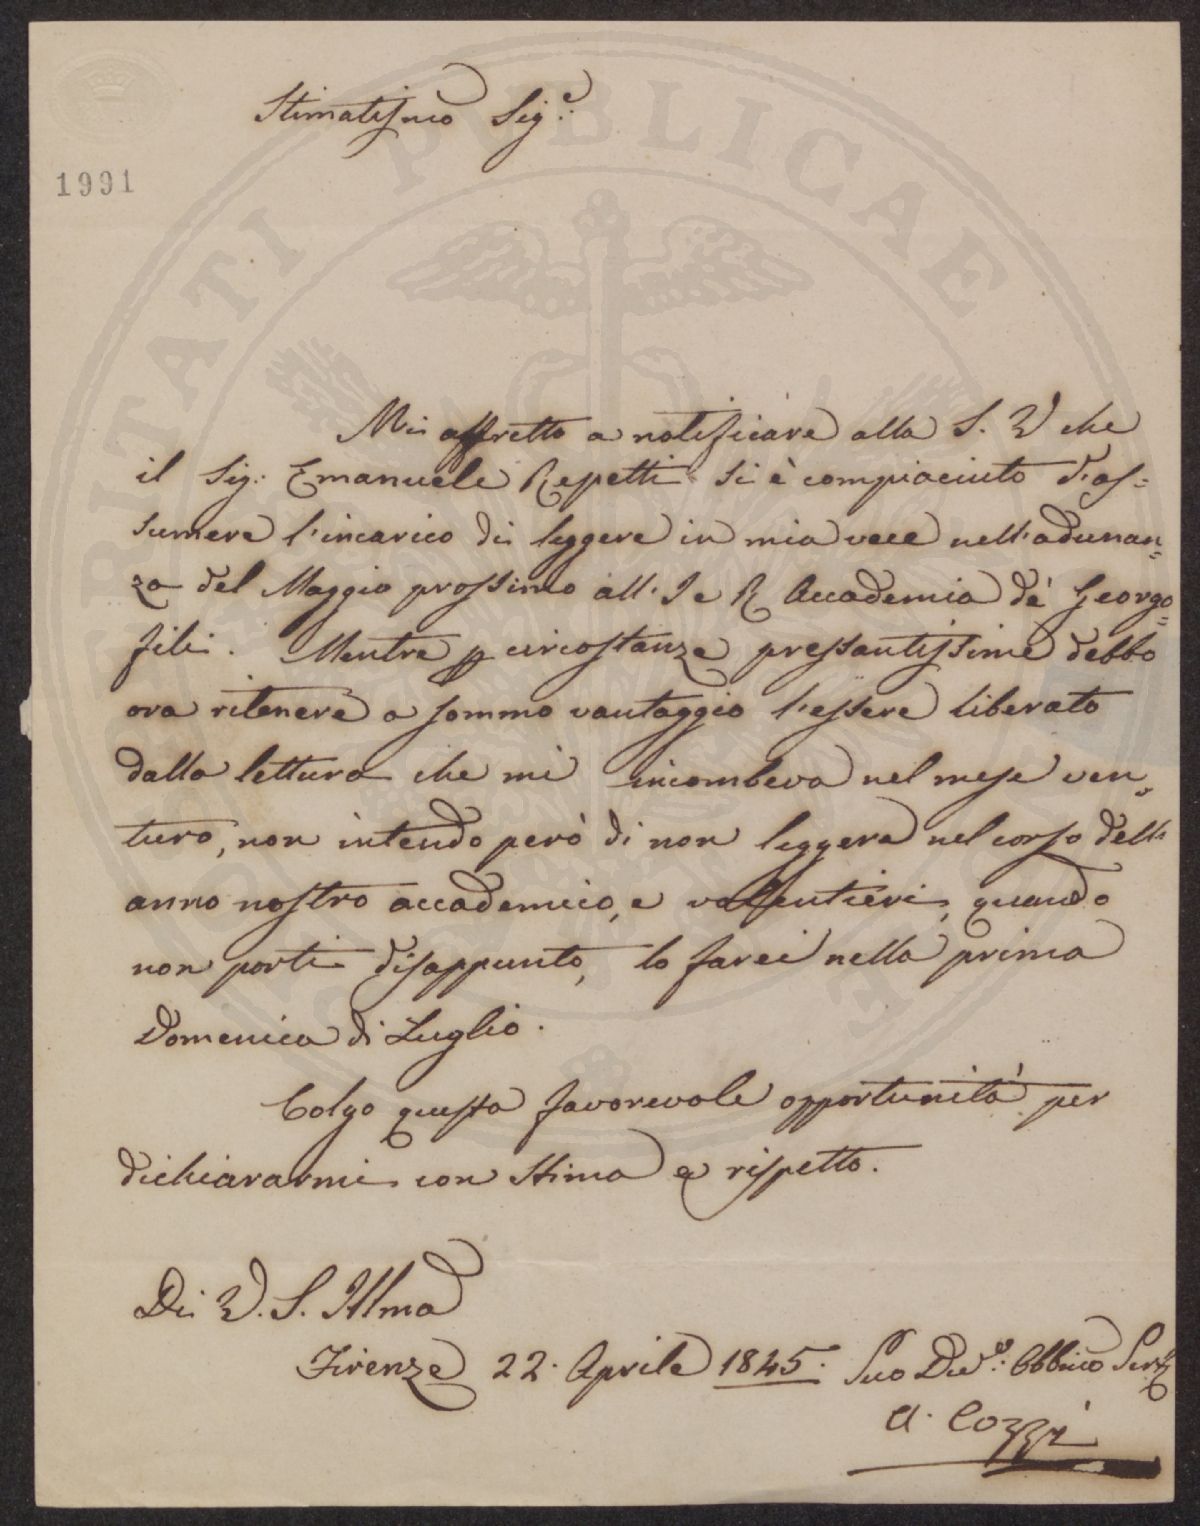 Stimatissmo Sig.e
1991
Mi affretto a notificare alla S. V che
il Sig: Emanuele Repetti si è compiaciuto d'as=
sumere l'incarico di leggere in mia vece nell'adunan=
za del Maggio prossimo all'I e R Accademia de' Georgo=
fili. Mentre p circostanze pressantissime debbo
ora ritenere a sommo vantaggio l'essere liberato
dalla lettura che mi incombeva nel mese ven=
turo, non intendo però di non leggere nel corso dell'
anno nostro accademico, e volentieri, quando
non porti disappunto, lo farei nella prima
Domenica di Luglio.
Colgo questa favorevole opportunità per
dichiararmi con stima e rispetto.
Di V. S. Illma
Firenze 22. Aprile 1845. Suo Dev.o: Obblico Serv
A. Cozzi
PUBLICAE